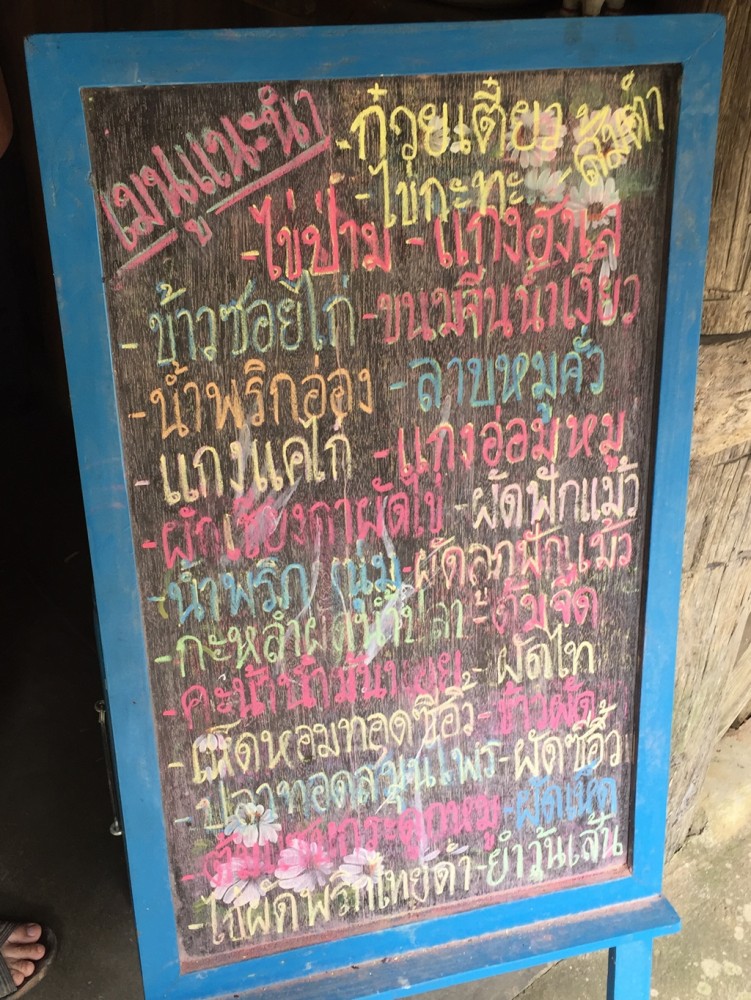 เมนูแนะนำ
-ก๋วยเตี๋ยว
-ส้มตำ
-ไข่กะทะ
-ไข่ป่าม -แกงฮังเล
-ข้าวซอยไก่ -ขนมจีนน้ำเงี้ยว
-น้ำพริกอ่อง -ลาบหมูคั่ว
-แกงแคไก่ -แกงอ่อมหมู
-ผัดเชียงดาผัดไข่ -ผัดฟักแม้ว
-น้ำพริก หนุ่ม -ผัดลูกฟักแม้ว
-กะหล่ำผัดน้ำปลา -ต้มจืด
-คะน้าน้ำมันหอย -ผัดไท
-เห็ดหอมทอดซีอิ้ว -ข้าวผัด
-ปลาทอดสมุนไพร -ผัดซีอิ้ว
-ต้มแซบกระดูกหมู -ผัดเผ็ด
-ไก่ผัดพริกไทยดำ -ยำวุ้นเส้น